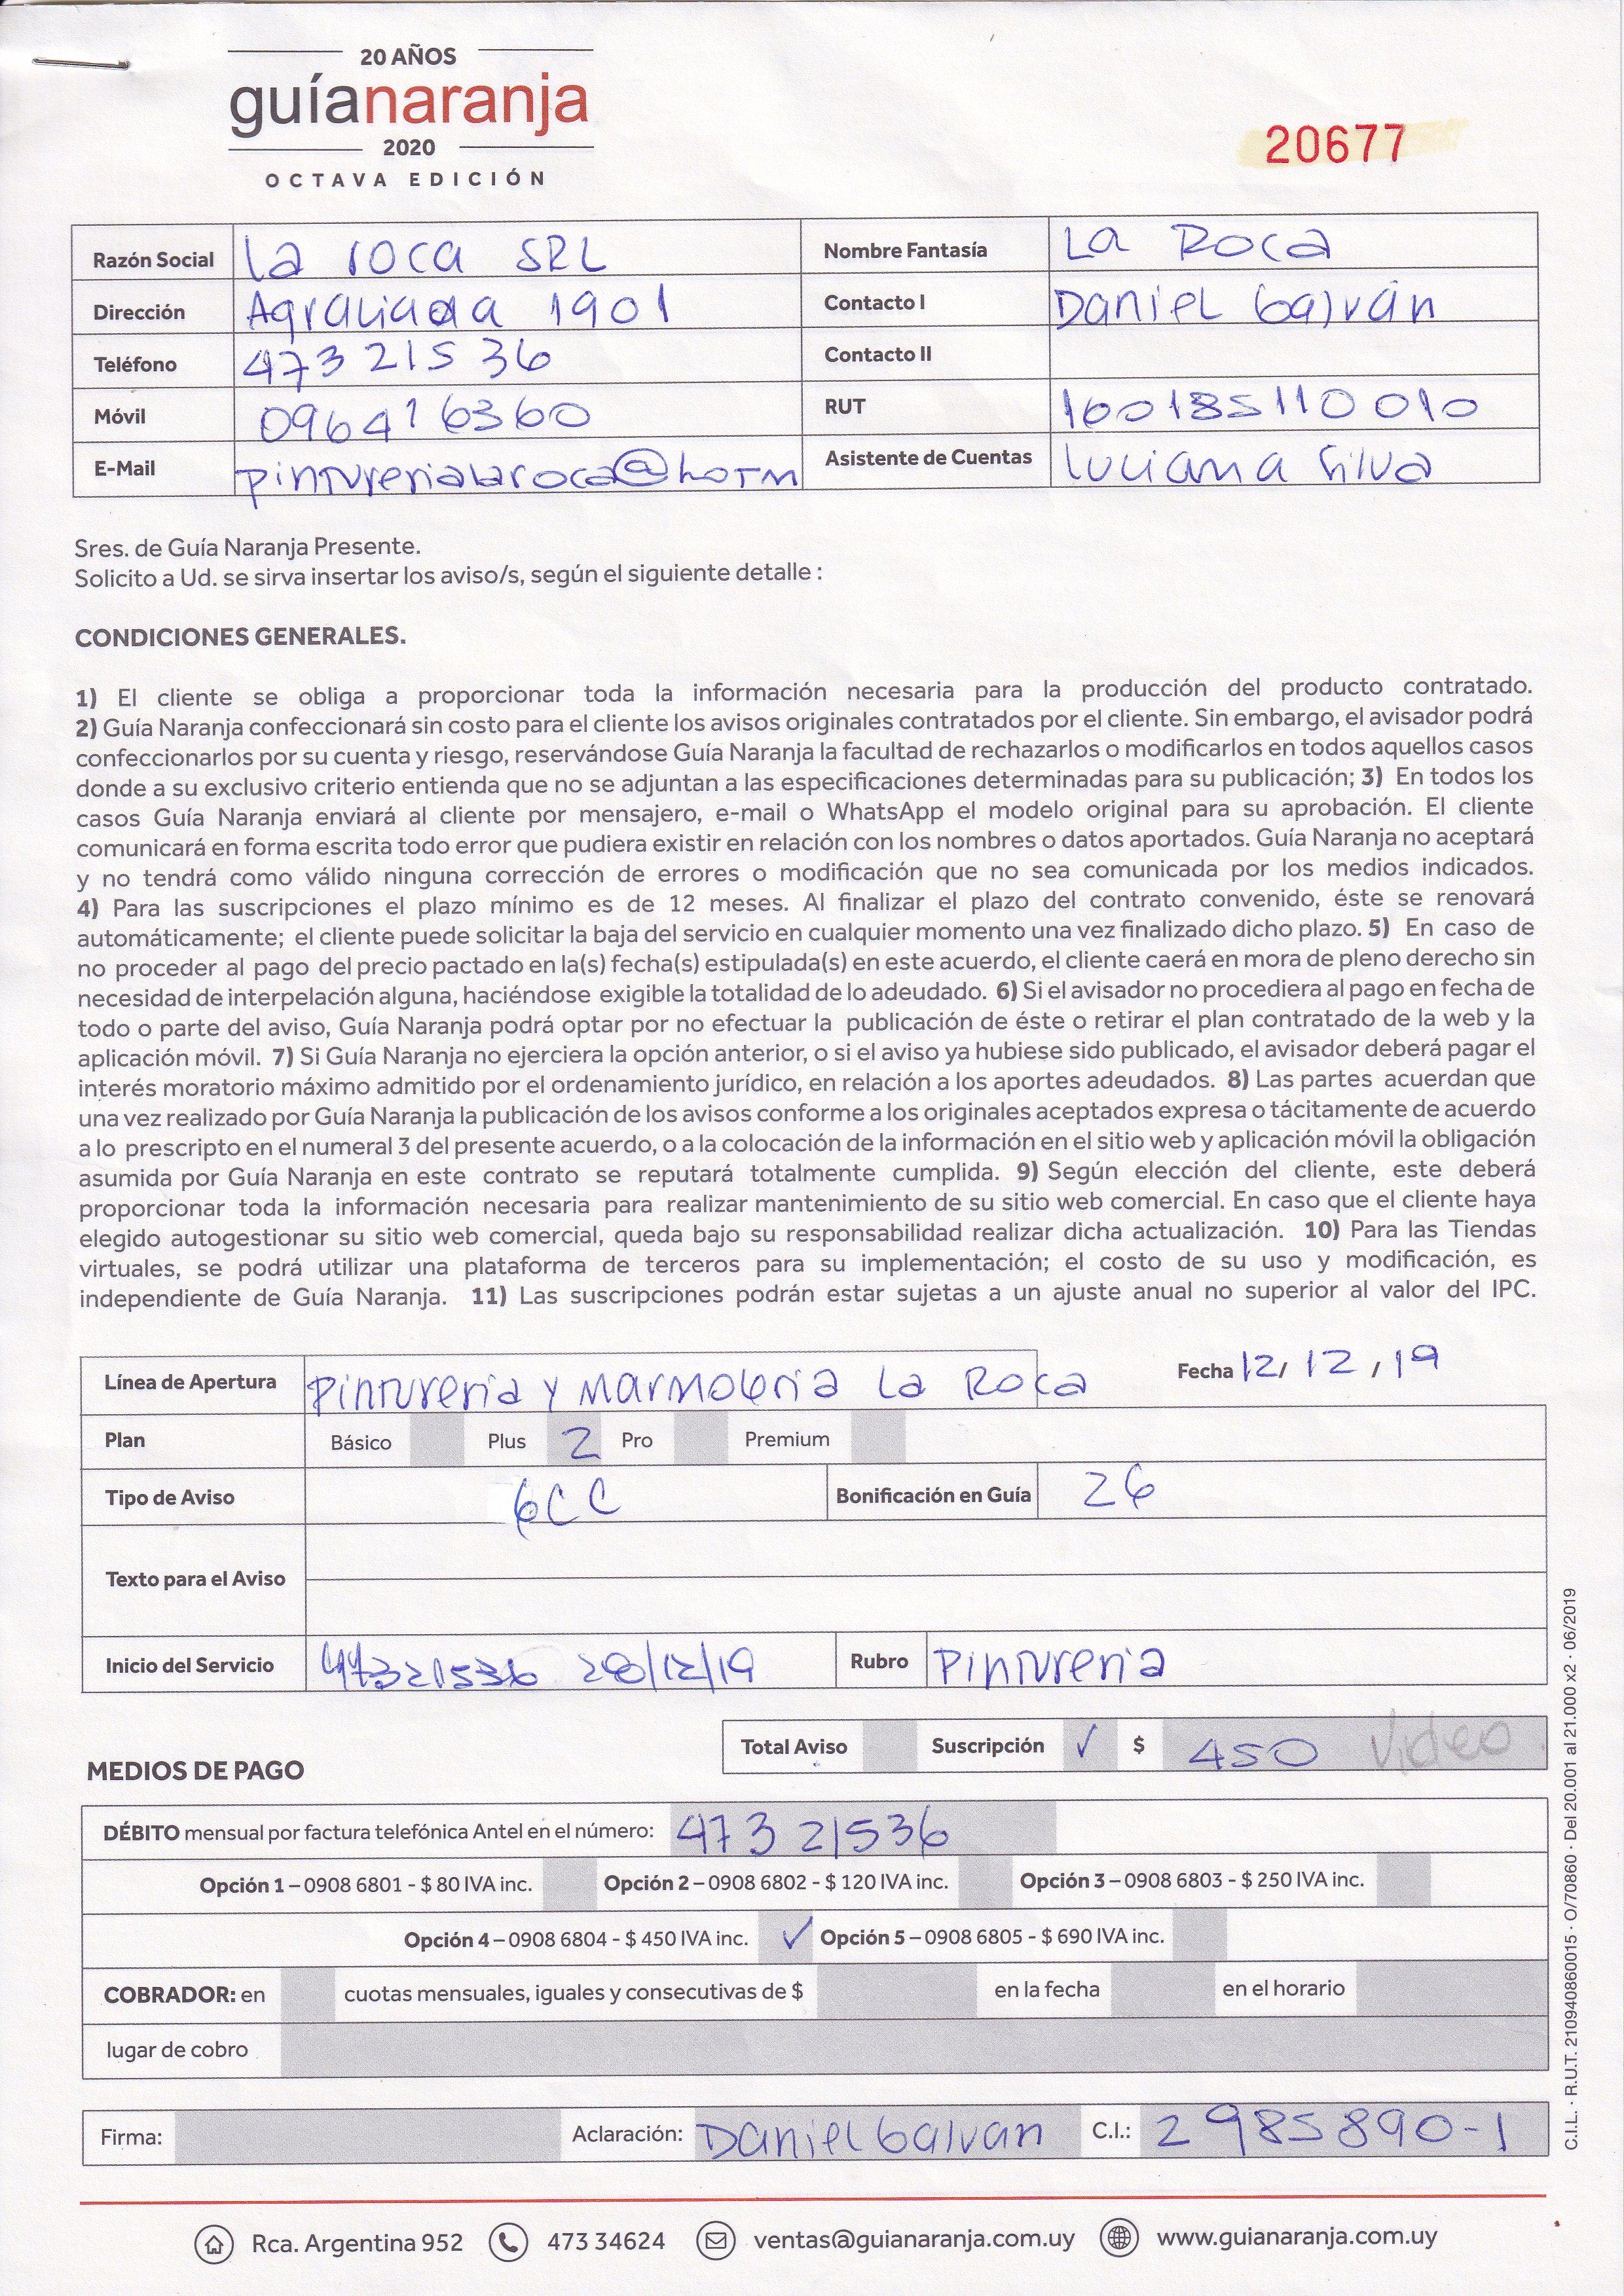 20 AÑOS
guíanaranja
2020
OCTAVA EDICIÓN
20677
Razón Social La roca SRL Nombre Fantasía La Roca
Dirección Agraciada 1901 Contacto I Daniel Galván
Teléfono 473 215 36 Contacto II
Móvil 096416360 RUT 160185110010
E-Mail pinturerialaroca@hotm Asistente de Cuentas Luciana Silva
Sres. de Guía Naranja Presente.
Solicito a Ud. se sirva insertar los aviso/s, según el siguiente detalle :
CONDICIONES GENERALES.
1) El cliente se obliga a proporcionar toda la información necesaria para la producción del producto contratado.
2) Guía Naranja confeccionará sin costo para el cliente los avisos originales contratados por el cliente. Sin embargo, el avisador podrá
confeccionarlos por su cuenta y riesgo, reservándose Guía Naranja la facultad de rechazarlos o modificarlos en todos aquellos casos
donde a su exclusivo criterio entienda que no se adjuntan a las especificaciones determinadas para su publicación; 3) En todos los
casos Guía Naranja enviará al cliente por mensajero, e-mail o WhatsApp el modelo original para su aprobación. El cliente
comunicará en forma escrita todo error que pudiera existir en relación con los nombres o datos aportados. Guía Naranja no aceptará
y no tendrá como válido ninguna corrección de errores o modificación que no sea comunicada por los medios indicados.
4) Para las suscripciones el plazo mínimo es de 12 meses. Al finalizar el plazo del contrato convenido, éste se renovará
automáticamente; el cliente puede solicitar la baja del servicio en cualquier momento una vez finalizado dicho plazo. 5) En caso de
no proceder al pago del precio pactado en la(s) fecha(s) estipulada(s) en este acuerdo, el cliente caerá en mora de pleno derecho sin
necesidad de interpelación alguna, haciéndose exigible la totalidad de lo adeudado. 6) Si el avisador no procediera al pago en fecha de
todo o parte del aviso, Guía Naranja podrá optar por no efectuar la publicación de éste o retirar el plan contratado de la web y la
aplicación móvil. 7) Si Guía Naranja no ejerciera la opción anterior, o si el aviso ya hubiese sido publicado, el avisador deberá pagar el
interés moratorio máximo admitido por el ordenamiento jurídico, en relación a los aportes adeudados. 8) Las partes acuerdan que
una vez realizado por Guía Naranja la publicación de los avisos conforme a los originales aceptados expresa o tácitamente de acuerdo
a lo prescripto en el numeral 3 del presente acuerdo, o a la colocación de la información en el sitio web y aplicación móvil la obligación
asumida por Guía Naranja en este contrato se reputará totalmente cumplida. 9) Según elección del cliente, este deberá
proporcionar toda la información necesaria para realizar mantenimiento de su sitio web comercial. En caso que el cliente haya
elegido autogestionar su sitio web comercial, queda bajo su responsabilidad realizar dicha actualización. 10) Para las Tiendas
virtuales, se podrá utilizar una plataforma de terceros para su implementación; el costo de su uso y modificación, es
independiente de Guía Naranja. 11) Las suscripciones podrán estar sujetas a un ajuste anual no superior al valor del IPC.
Línea de Apertura Pinturería y Marmolería La Roca Fecha 12/ 12 / 19
Plan Básico Plus 2 Pro Premium
Tipo de Aviso 6CC Bonificación en Guía 26
Texto para el Aviso
Inicio del Servicio 47321536 28/12/19 Rubro Pinturería
Total Aviso Suscripción ✓ $ 450 Video
MEDIOS DE PAGO
DÉBITO mensual por factura telefónica Antel en el número: 473 21536
Opción 1 – 0908 6801 - $ 80 IVA inc. Opción 2 – 0908 6802 - $ 120 IVA inc. Opción 3 – 0908 6803 - $ 250 IVA inc.
Opción 4 – 0908 6804 - $ 450 IVA inc. ✓ Opción 5 – 0908 6805 - $ 690 IVA inc.
COBRADOR: en cuotas mensuales, iguales y consecutivas de $ en la fecha en el horario
lugar de cobro
Firma: Aclaración: Daniel Galvan C.I.: 2985890-1
Rca. Argentina 952 473 34624 ventas@guianaranja.com.uy www.guianaranja.com.uy
C.I.L. · R.U.T. 210940860015 · O/70860 · Del 20.001 al 21.000 x2 · 06/2019